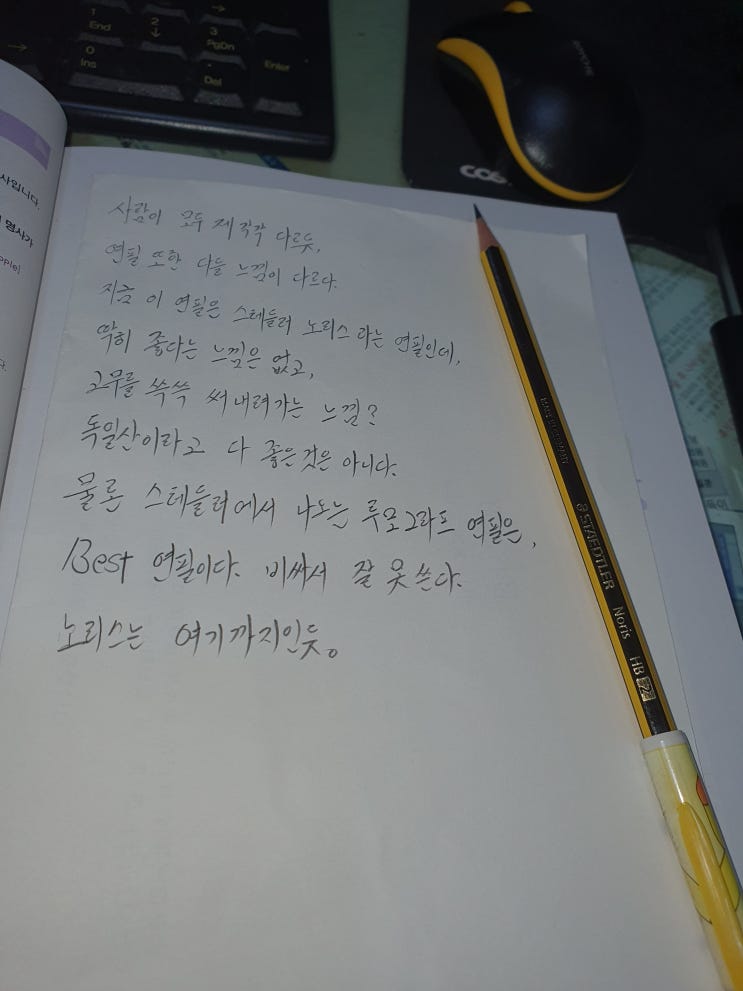 1
End
2
↓
3
PgDn
→
0
Ins
Del
Enter
COS
사입니다.
명사가
사람이 모두 제각각 다르듯,
연필 또한 다들 느낌이 다르다.
지금 이 연필은 스테들러 노리스 라는 연필인데,
딱히 좋다는 느낌은 없고,
고무를 쓱쓱 써내려가는 느낌?
독일산이라고 다 좋은것은 아니다.
물론 스테들러에서 나노는 루모그라프 연필은,
Best 연필이다. 비싸서 잘 못 쓴다.
노리스는 여기까지인듯。
MADE IN GERMANY
STAEDTLER Noris HB 2